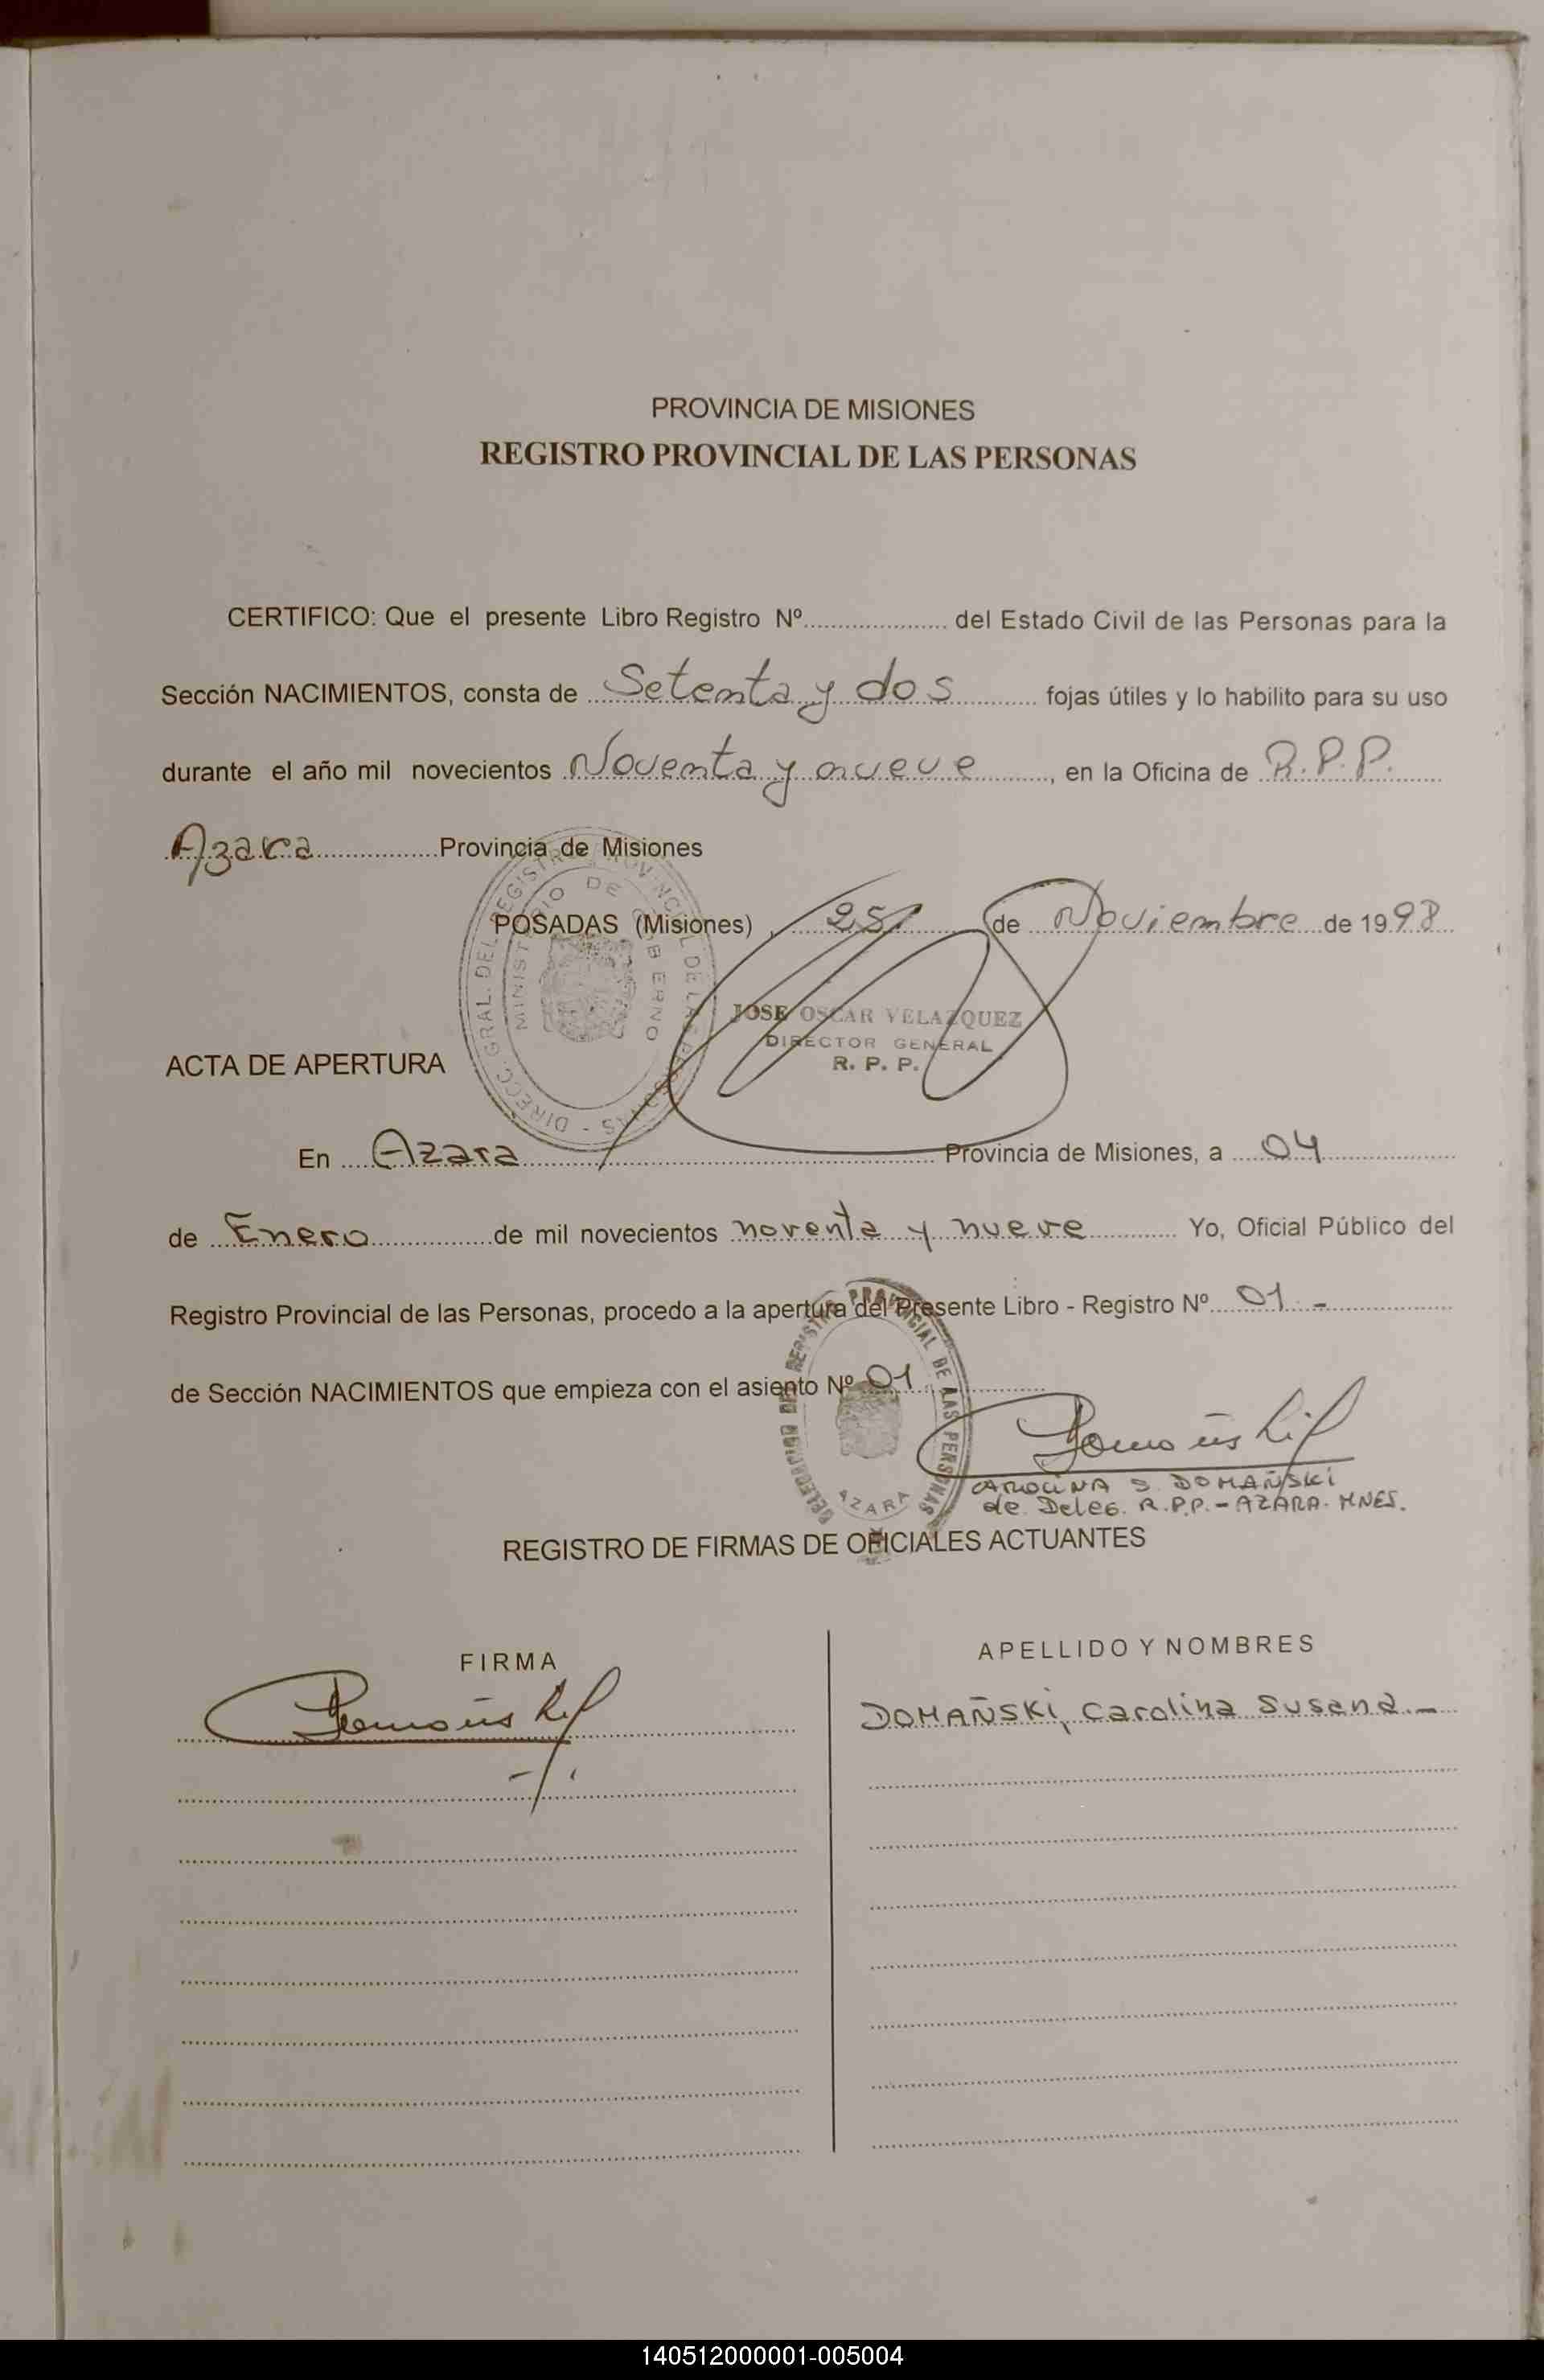 PROVINCIA DE MISIONES
REGISTRO PROVINCIAL DE LAS PERSONAS
CERTIFICO: Que el presente Libro Registro Nº..................... del Estado Civil de las Personas para la
Sección NACIMIENTOS, consta de Setenta y dos fojas útiles y lo habilito para su uso
durante el año mil novecientos Noventa y nueve, en la Oficina de R.P.P.
Azara Provincia de Misiones
POSADAS (Misiones), 25 de Noviembre de 1998
DIRECC. GRAL. DEL REGISTRO PROVINCIAL DE LAS PERSONAS -
MINISTERIO DE GOBERNO
JOSE OSCAR VELAZQUEZ
DIRECTOR GENERAL
R. P. P.
ACTA DE APERTURA
En Azara Provincia de Misiones, a 04
de Enero de mil novecientos noventa y nueve Yo, Oficial Público del
Registro Provincial de las Personas, procedo a la apertura del Presente Libro - Registro Nº 01 -
de Sección NACIMIENTOS que empieza con el asiento Nº 01
DELEGACION DEL REGISTRO PROVINCIAL DE LAS PERSONAS
AZARA
Domañski
CAROLINA S. DOMAÑSKI
de Deleg. R.P.P. - AZARA. MNES.
REGISTRO DE FIRMAS DE OFICIALES ACTUANTES
FIRMA
APELLIDO Y NOMBRES
Domañski
DOMAÑSKI, Carolina Susana.-
140512000001-005004